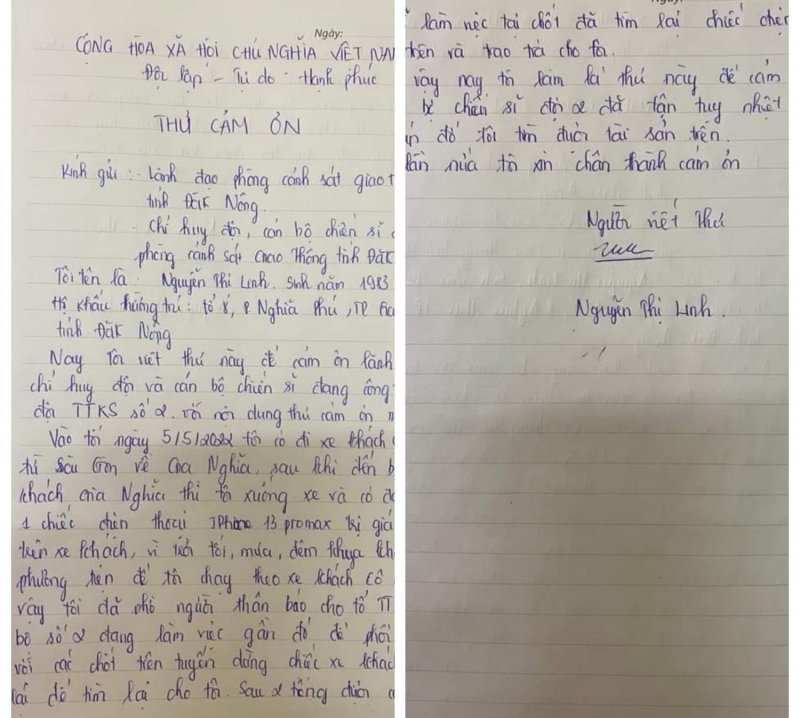 Ngày:
CỘNG HÒA XÃ HỘI CHỦ NGHĨA VIỆT NAM
Độc lập - Tự do - Hạnh phúc
THƯ CẢM ƠN
Kính gửi : - Lãnh đạo phòng cảnh sát giao t
tỉnh Đăk Nông.
- Chỉ huy đội, cán bộ chiến sĩ
phòng cảnh sát Giao thông tỉnh Đăk
Tôi tên là : Nguyễn Thị Linh. Sinh năm 1983
Hộ khẩu thường trú : tổ 8, P. Nghĩa Phú, TP Gia
tỉnh Đăk Nông
Nay tôi viết thư này để cảm ơn lãnh
chỉ huy đội và cán bộ chiến sĩ đang công
đội TTKS số 2. với nội dung thư cảm ơn
Vào tối ngày 5/5/2022 tôi có đi xe khách
từ Sài Gòn về Gia Nghĩa, sau khi đến b
khách Gia Nghĩa thì tôi xuống xe và có để
1 chiếc điện thoại IPhone 13 promax trị giá
trên xe khách, vì trời tối, mưa, đêm khuya kh
phương tiện để tôi chạy theo xe khách
vậy tôi đã nhờ người thân báo cho tổ TT
bộ số 2 đang làm việc gần đó để phối
với các chốt trên tuyến dừng chiếc xe khác
lại để tìm lại cho tôi. Sau 2 tiếng được
làm việc tại chốt đã tìm lại chiếc điện
trên và trao trả cho tôi.
vậy nay tôi làm lá thư này để cảm
bộ chiến sĩ đội 2 đã tận tụy nhiệt
đỡ tôi tìm được tài sản trên.
lần nữa tôi xin chân thành cảm ơn
Người viết thư
Nguyễn Thị Linh.